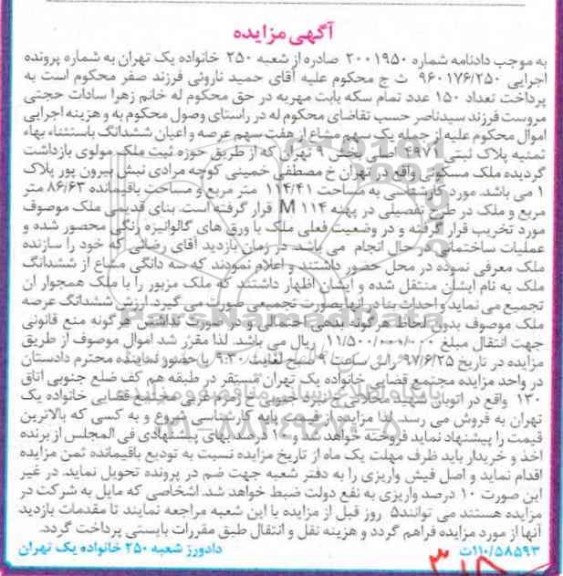 آگهی مزایده
به موجب دادنامه شماره ۲۰۰۱۹۵۰ صادره از شعبه ۲۵۰ خانواده یک تهران به شماره پرونده
اجرایی ۹۶۰۱۷۶/۲۵۰ ث ج محکوم علیه آقای حمید ناروئی فرزند صفر محکوم است به
پرداخت تعداد ۱۵۰ عدد تمام سکه بابت مهریه در حق محکوم له خانم زهرا سادات حجتی
مروست فرزند سیدناصر حسب تقاضای محکوم له در راستای وصول محکوم به و هزینه اجرایی
اموال محکوم علیه از جمله یک سهم مشاع از هفت سهم عرصه و اعیان ششدانگ باستثناء بهاء
ثمنیه پلاک ثبتی ۴۹۷۱ اصلی بخش ۹ تهران که از طریق حوزه ثبت ملک مولوی بازداشت
گردیده ملک مسکونی واقع در تهران خ مصطفی خمینی کوچه مرادی نبش بیرون پور پلاک
۱ می باشد. مورد کارشناسی به مساحت ۱۱۴/۴۱ متر مربع و مساحت باقیمانده ۸۶/۶۳ متر
مربع و ملک در طرح تفصیلی در پهنه M ۱۱۴ قرار گرفته است. بنای قدیمی ملک موصوف
مورد تخریب قرار گرفته و در وضعیت فعلی ملک با ورق های گالوانیزه رنگی محصور شده و
عملیات ساختمانی در حال انجام می باشد. در زمان بازدید آقای رضائی که خود را سازنده
ملک معرفی نموده در محل حضور داشتند و اعلام نمودند که سه دانگی مشاع از ششدانگ
ملک به نام ایشان منتقل شده و ایشان اظهار داشتند که ملک مزبور را با ملک همجوار آن
تجمیع می نماید و احداث بنا در آنها بصورت تجمیعی صورت می گیرد. ارزش ششدانگ عرصه
ملک موصوف بدون لحاظ هرگونه بدهی احتمالی و در صورت نداشتن هرگونه منع قانونی
جهت انتقال مبلغ ۱۱/۵۰۰/۰۰۰/۰۰۰ ریال می باشد. لذا مقرر شد اموال موصوف از طریق
مزایده در تاریخ ۹۷/۶/۲۵ راس ساعت ۹ صبح لغایت ۹:۳۰ با حضور نماینده محترم دادستان
در واحد مزایده مجتمع قضایی خانواده یک تهران مستقر در طبقه هم کف ضلع جنوبی اتاق
۱۳۰ واقع در اتوبان شهید محلاتی نبرد جنوبی خ دوم غربی مجتمع قضایی خانواده یک
تهران به فروش می رسد. لذا مزایده از قیمت پایه کارشناسی شروع و به کسی که بالاترین
قیمت را پیشنهاد نماید فروخته خواهد شد و ۱۰ درصد بهای پیشنهادی فی المجلس از برنده
اخذ و خریدار باید ظرف مهلت یک ماه از تاریخ مزایده نسبت به تودیع باقیمانده ثمن مزایده
اقدام نماید و اصل فیش واریزی را به دفتر شعبه جهت ضم در پرونده تحویل نماید. در غیر
این صورت ۱۰ درصد واریزی به نفع دولت ضبط خواهد شد. اشخاصی که مایل به شرکت در
مزایده هستند می توانند۵ روز قبل از مزایده با این شعبه مراجعه نمایند تا مقدمات بازدید
آنها از مورد مزایده فراهم گردد و هزینه نقل و انتقال طبق مقررات بایستی پرداخت گردد.
۱۱۰/۵۸۵۹۳ث دادورز شعبه ۲۵۰ خانواده یک تهران